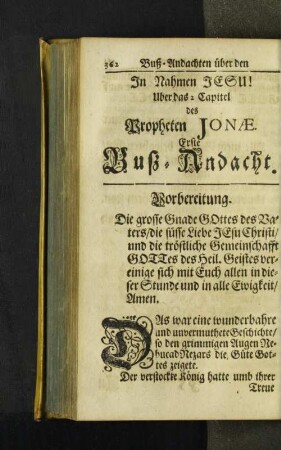 362 Buß-Andachten über den
In Nahmen JESU!
Uber das 2 Capitel
des
Propheten JONÆ.
Erste
Buß-Andacht.
Vorbereitung.
Die grosse Gnade GOttes des Va-
ters/die süsse Liebe JEsu Christi/
und die tröstliche Gemeinschafft
GOTTes des Heil. Geistes ver-
einige sich mit Euch allen in die-
ser Stunde und in alle Ewigkeit/
Amen.
DAs war eine wunderbahre
und unvermuthete Geschichte/
so den grimmigen Augen Ne-
bucadNezars die Güte Got-
tes zeigete.
Der verstockte König hatte umb ihrer
Treue